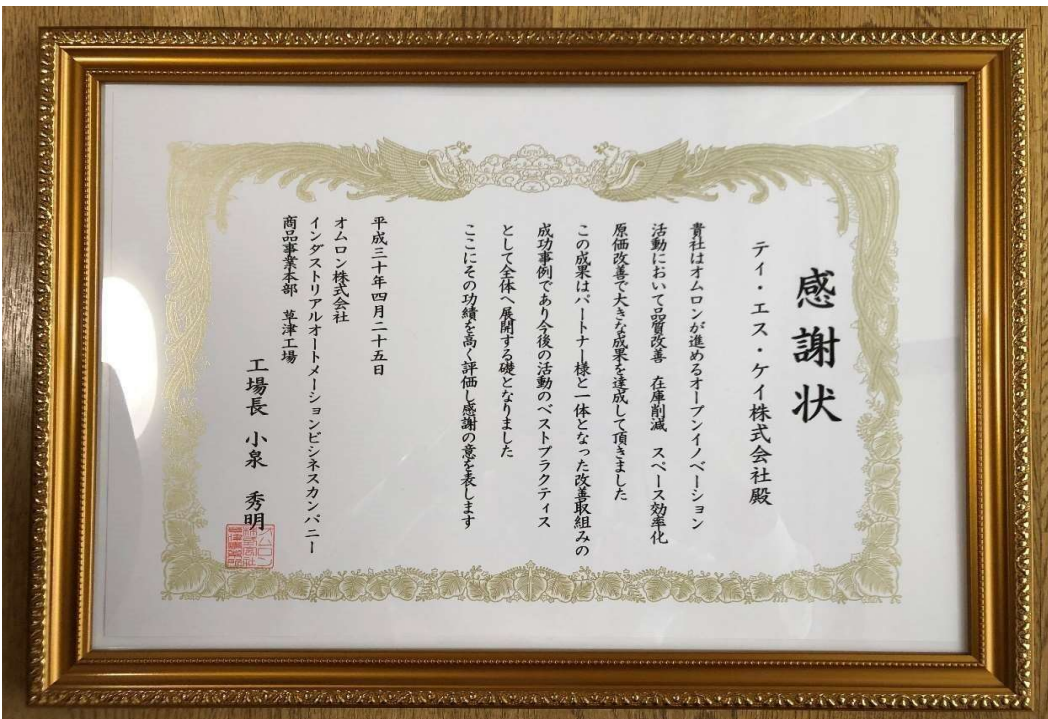 感謝状
ティ・エス・ケイ株式会社殿
貴社はオムロンが進めるオープンイノベーション
活動において品質改善 在庫削減 スペース効率化
原価改善で大きな成果を達成して頂きました
この成果はパートナー様と一体となった改善取組みの
成功事例であり今後の活動のベストプラクティス
として全体へ展開する礎となりました
ここにその功績を高く評価し感謝の意を表します
平成三十年四月二十五日
オムロン株式会社
インダストリアルオートメーションビジネスカンパニー
商品事業本部 草津工場
工場長 小泉 秀明